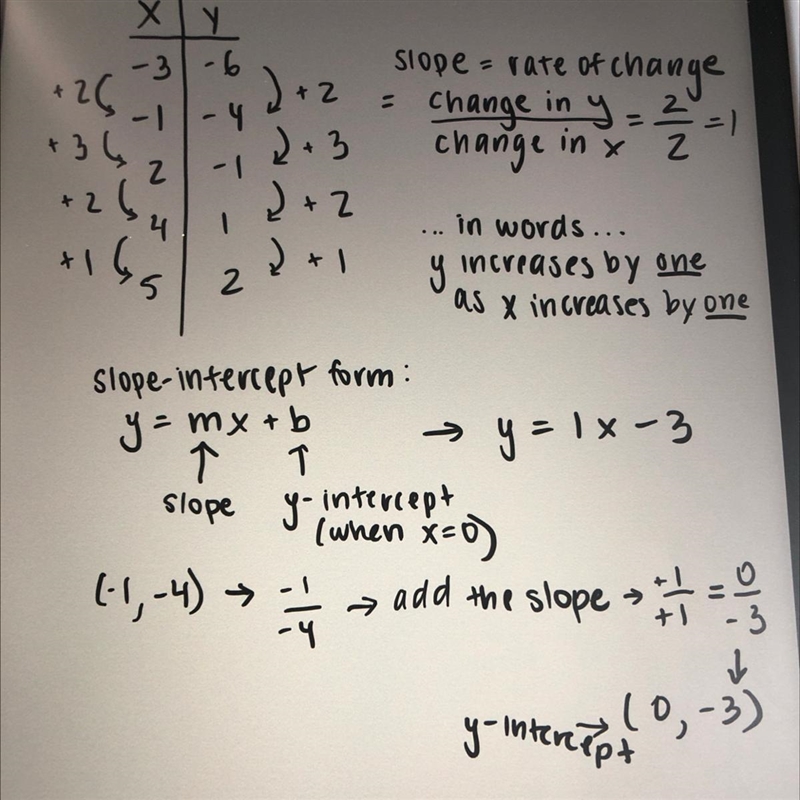 X Y
-3 -6
+2 +2
-1 -4
+3 +3
2 -1
+2 +2
4 1
+1 +1
5 2
slope = rate of change
= change in y / change in x = 2/2 = 1
... in words...
y increases by one
as x increases by one
slope-intercept form:
y = mx + b → y = 1x - 3
↑ ↑
slope y-intercept
(when x=0)
(-1, -4) → -1/-4 → add the slope → +1/+1 = 0/-3
↓
y-intercept → (0, -3)